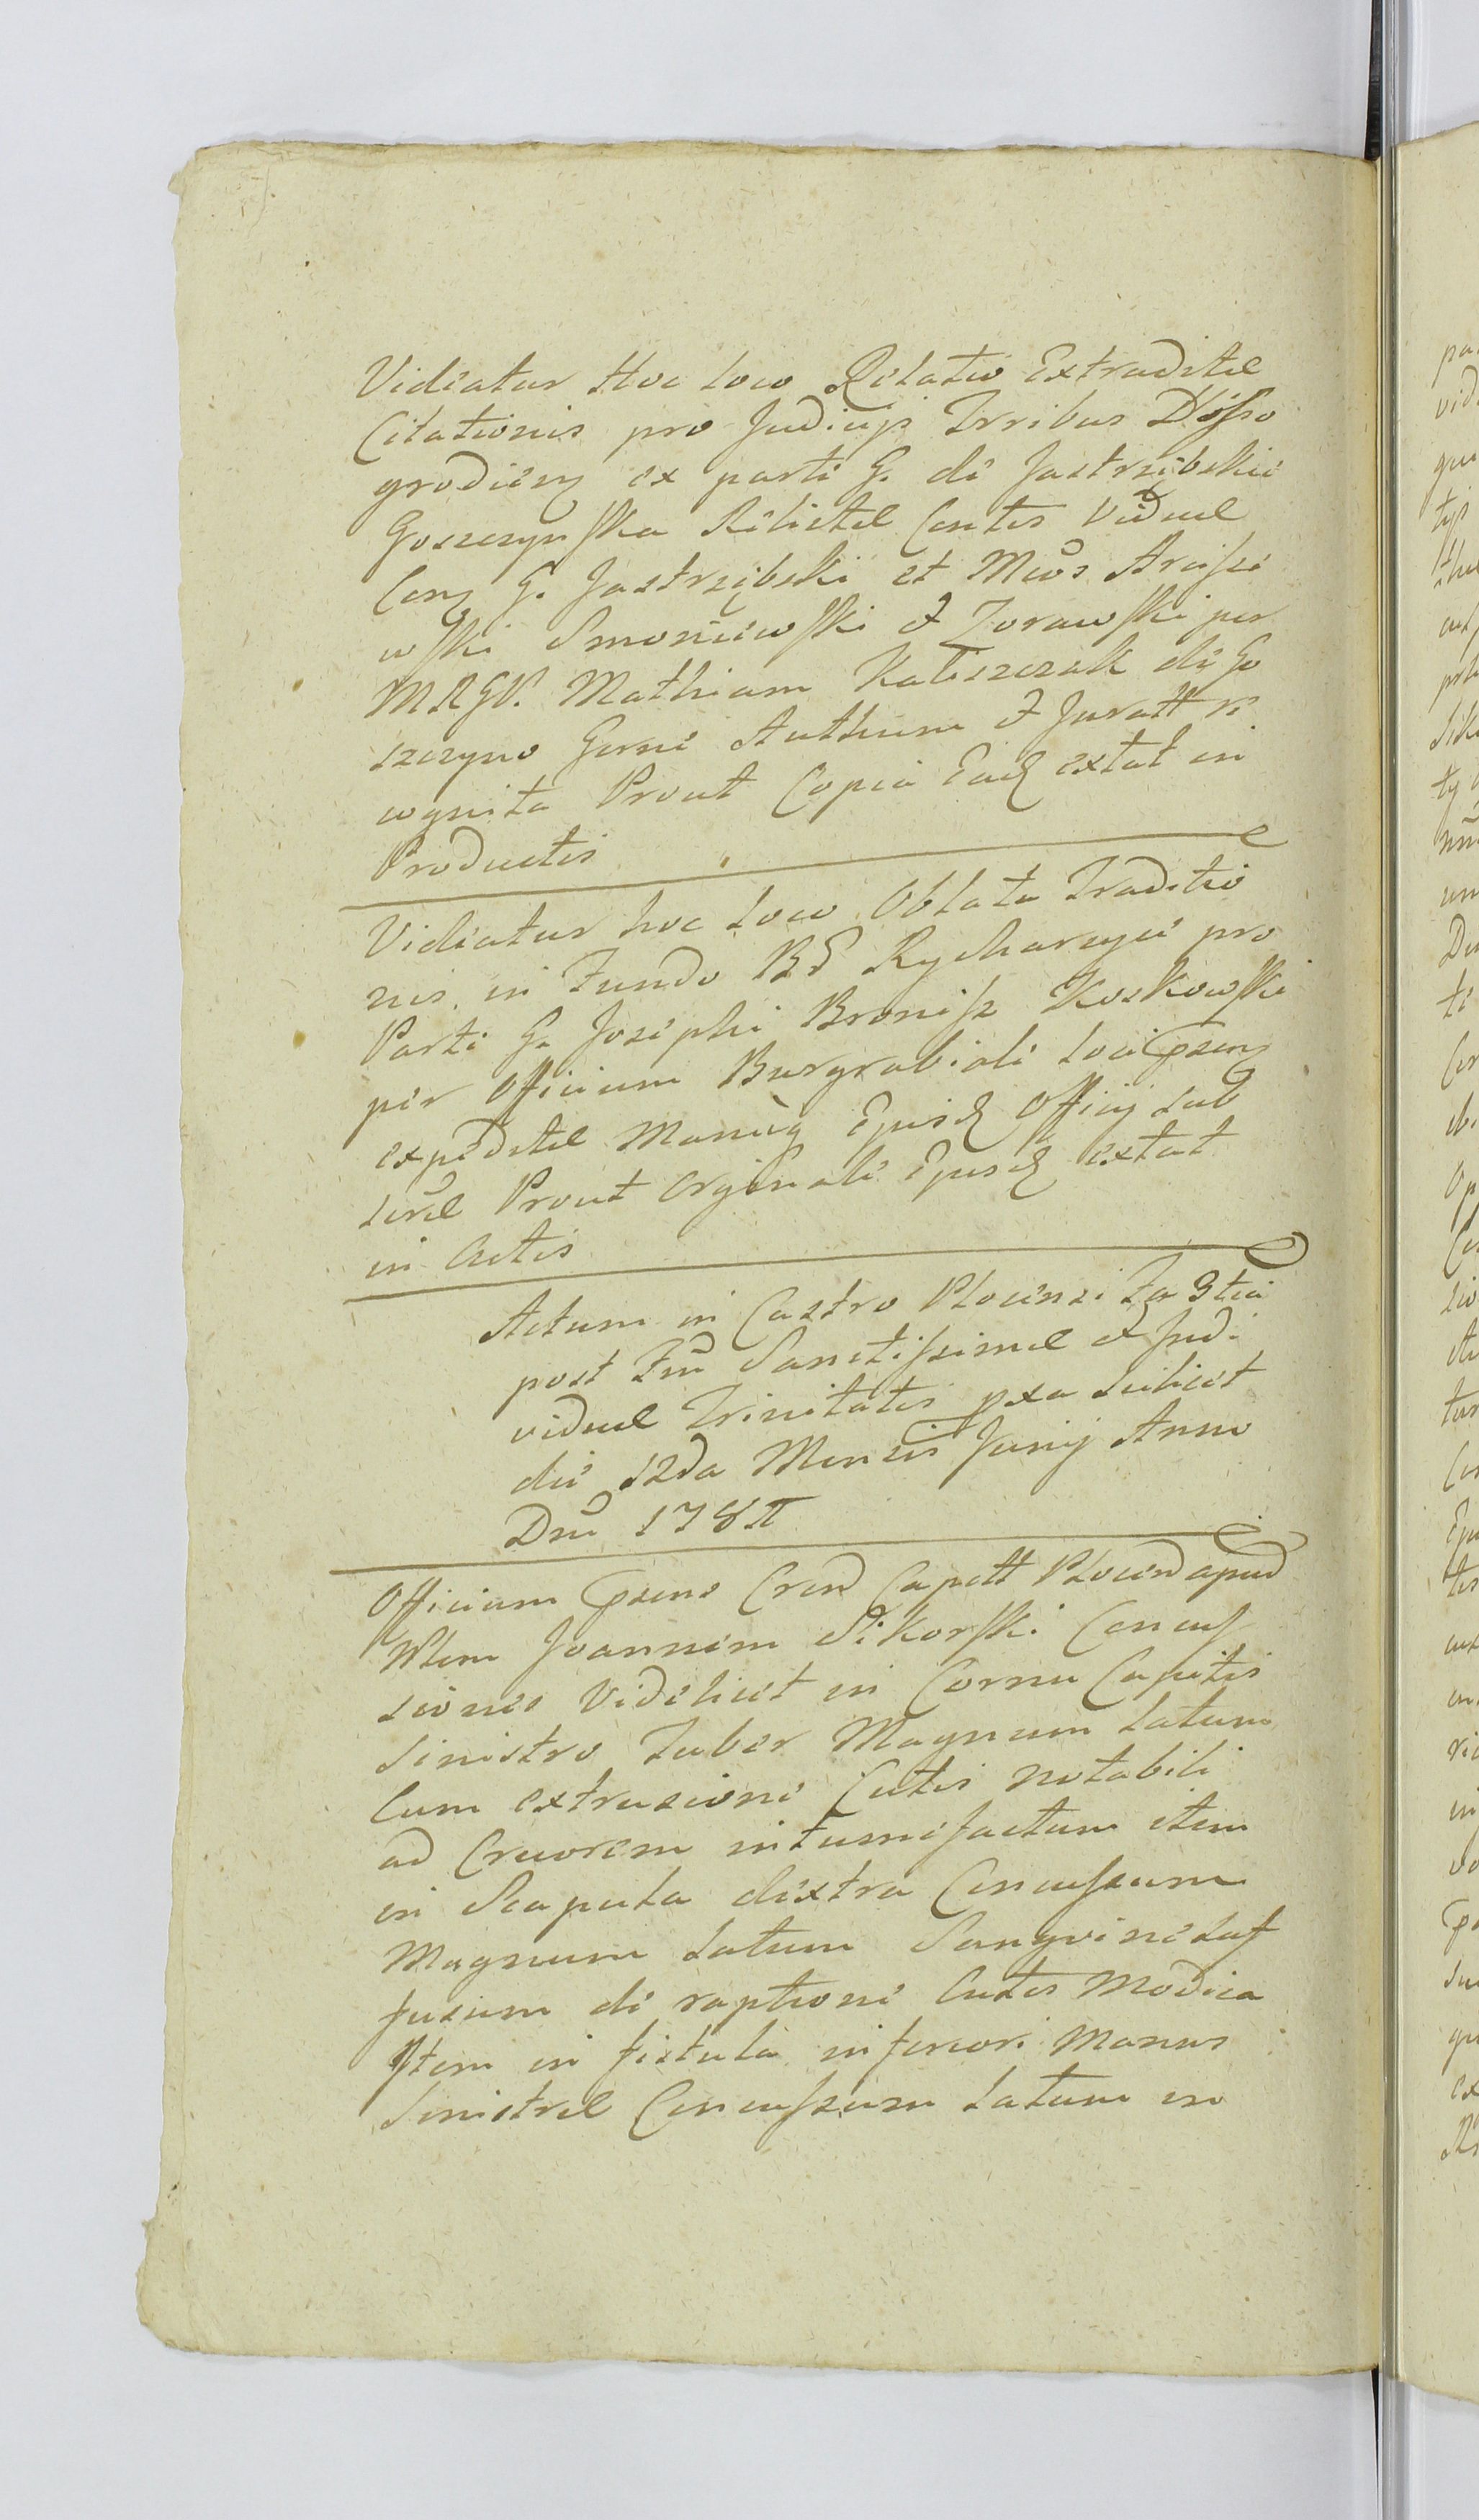 Videatur Hoc loco Relatio Extraditæ
Citationis pro Judicijs Trribus Wysso
grodien ex parte G. de Jastrzębskie
Goszczynska Relictæ Contes Viduæ
Con G. Jastrzębski et
wski Smoniewski et Zorawski per
MRGV. Mathiam Kaliszczak de Go
szczyno Gerni Authum et Juratt re
cognita Prout Copia Ead extat in
Productis
Videatur hoc loco Oblata Traditio
nis in Fundo Rycharcyce pro
Parte G. Josephi Bronisz Koskowski
per Officium Burgrabiale loci psens
expeditæ Manuq Ejusd Officij sub
scræ Prout Orginale Ejusd extat
in Actis
Actum in Castro Plocensi Fa 3tia
post Fm Sanctissimæ et Jndi
viduæ Trinitatis pxa scilicet
die 12da Mensis Junij Anno
Dni 178
Officium psens Cren Capitt Plocen apud
Joannem Sikorski Concus
siones Videlicet in Cornu Capitis
Sinistro Tuber Magnum latum
Cum extrusione Cutis notabili
ad Cruorem intumefactum item
in Scapula dextra Concussum
Magnum latum Sangvine suf
fusum de raptione Cutis Modica
Jtem in fistula inferiori Manus
Sinistræ Concussum latum in